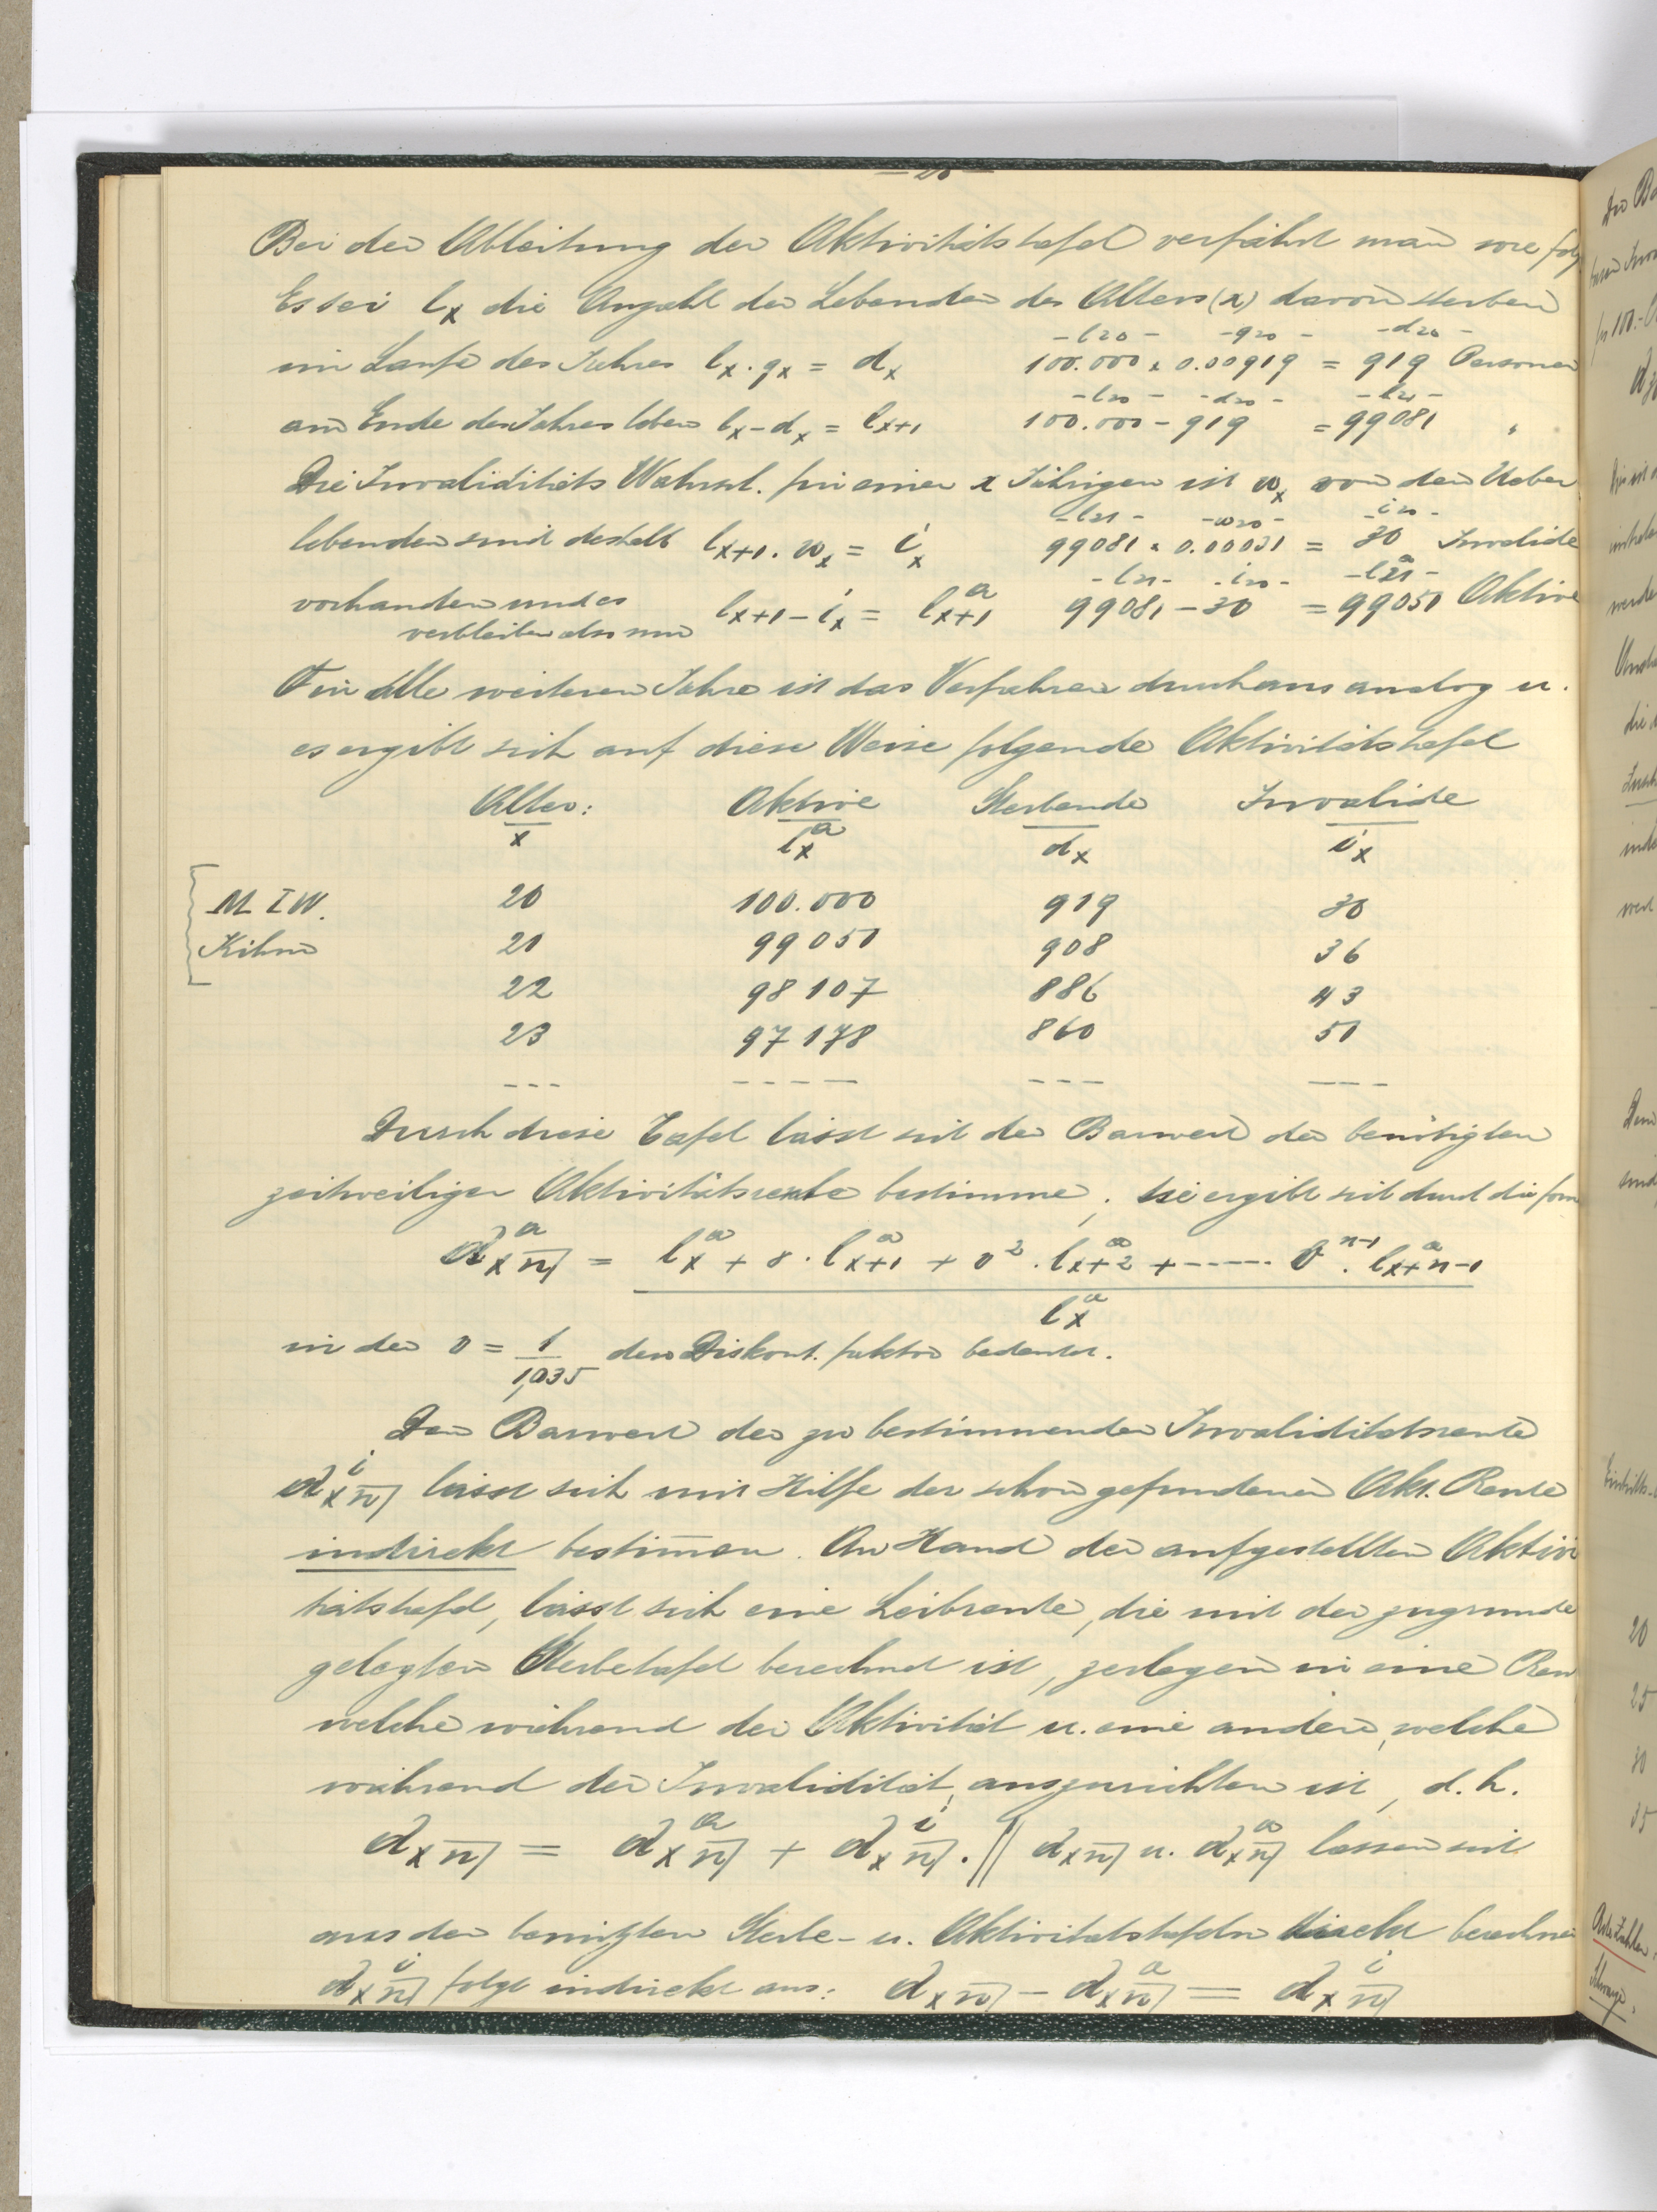 Bei der Ableitung der Aktivitätstafel verfährt man wie folg
Es sei lx die Anzahl der Lebenden des Alters (x) davon sterben
-l20- -q20- -d20-
im Laufe des Jahres lx · qx = dx 100.000 x 0.00919 = 919 Personen
-l20- -d20- -l21-
am Ende des Jahres leben lx - dx = lx+1 100.000 - 919 = 99081 "
Die Invaliditäts Wahrsch. für einen x Jährigen ist wx von den Ueber
-l21- -w20- -i20-
lebenden sind deshalb lx+1 . wx = ix 99081 x 0.00031 = 30 Invalide
-l21- -i20- -l21^a-
vorhanden und es
verbleiben also nun lx+1 - ix = l^a x+1 99081 - 30 = 99051 Aktive
Für alle weiteren Jahre ist das Verfahren durchaus analog u.
es ergibt sich auf diese Weise folgende Aktivitätstafel
Alter: Aktive Sterbende Invalide
x l^a x dx ix
M I W. 20 100.000 919 30
21 99051 908 36
22 98107 886 43
23 97178 860 51
--- ----- --- ----
Durch diese Tafel lässt sich der Barwert der benötigten
zeitweiligen Aktivitätsrente bestimme, sie ergibt sich durch die form
a^a x n̅| = l^a x + v · l^a x+1 + v² . l^a x+2 + ------ v^n-1 . l^a x+n-1
l^a x
in der v = 1/1,035 den Diskont. faktor bedeutet.
Der Barwert der zu bestimmenden Invaliditätsrente
a^i x n̅| lässt sich mit Hilfe der schon gefundenen Akt. Rente
indirekt bestim̅en. An Hand der aufgestellten Aktivi
tätstafel, lässt sich eine Leibrente, die mit der zugrunde
gelegten Sterbetafel berechnet ist, zerlegen in eine Ren
welche während der Aktivität u. eine andere, welche
während der Invalidität, auszurichten ist, d.h.
a x n̅| = a^a x n̅| + a^i x n̅| . || a x n̅| u. a^a x n̅| lassen sich
aus den benützten Sterbe- u. Aktivitätstafeln direkt berechnen
a^i x n̅| folgt indirekt aus: a x n̅| - a^a x n̅| = a^i x n̅|
20
25
30
35